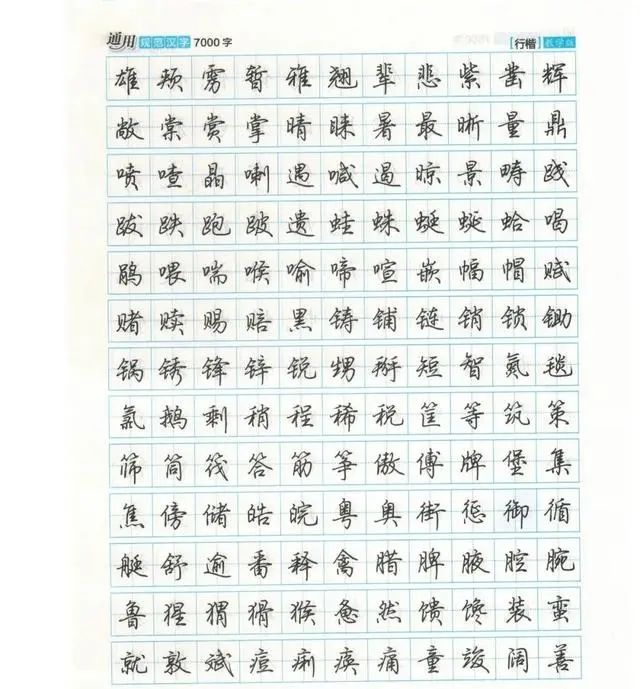 通用规范汉字7000字 [行楷] 教学版
雄颊雳暂雅翘辈悲紫凿辉
敞棠赏掌晴睐暑最晰量鼎
喷喳晶喇遇喊遏晾景畴践
跋跌跑跛遗蛙蛛蜓蜒蛤喝
鹃喂喘喉喻啼喧嵌幅帽赋
赌赎赐赔黑铸铺链销锁锄
锅锈锋锌锐甥掰短智氮毯
氯鹅剩稍程稀税筐等筑策
筛筒筏答筋筝傲傅牌堡集
焦傍储皓皖粤奥街惩御循
艇舒逾番释禽腊脾腋腔腕
鲁猩猬猾猴惫然馈馋装蛮
就敦斌痘痢痪痛童竣阔善